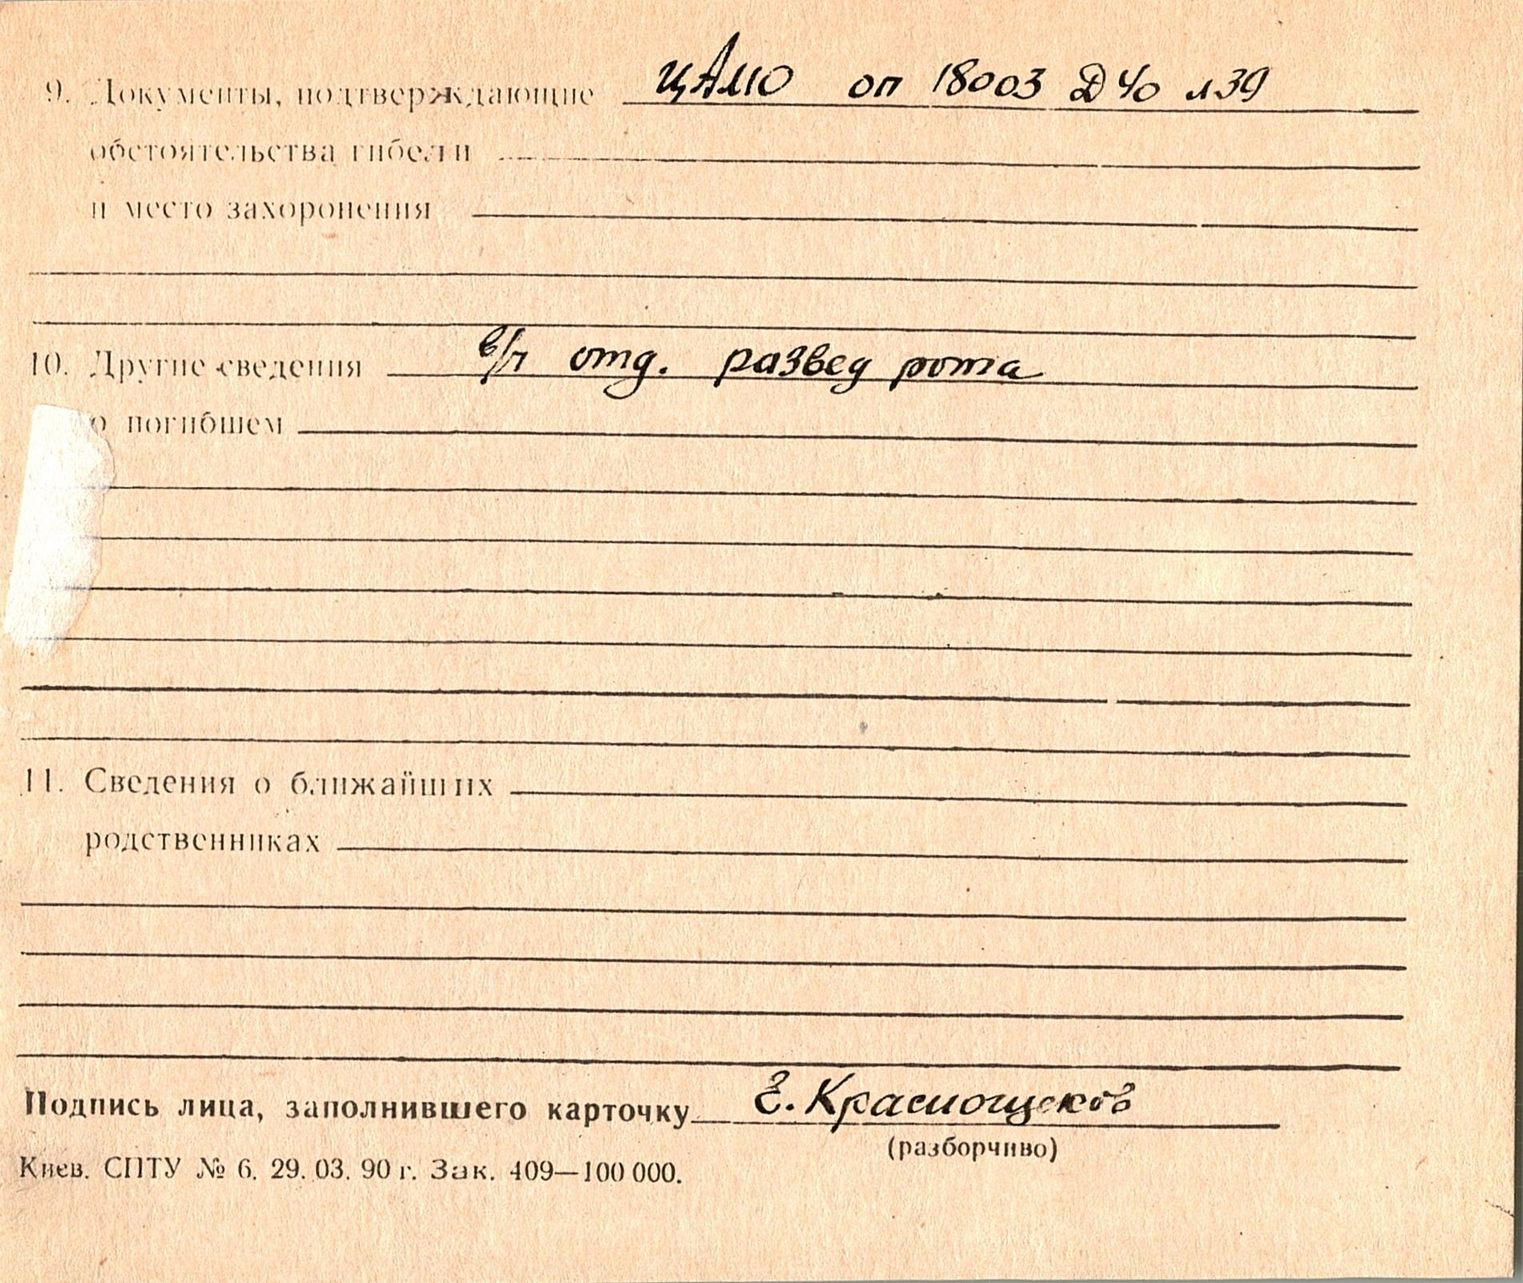 9. Документы, подтверждающие ЦАМО оп 18003 Д 40 л 39
обстоятельства гибели
и место захоронения
10. Другие сведения в/ч отд. развед рота
о погибшем
11. Сведения о ближайших
родственниках
Подпись лица, заполнившего карточку Е. Краснощеков
(разборчиво)
Киев. СПТУ № 6. 29. 03. 90 г. Зак. 409—100 000.